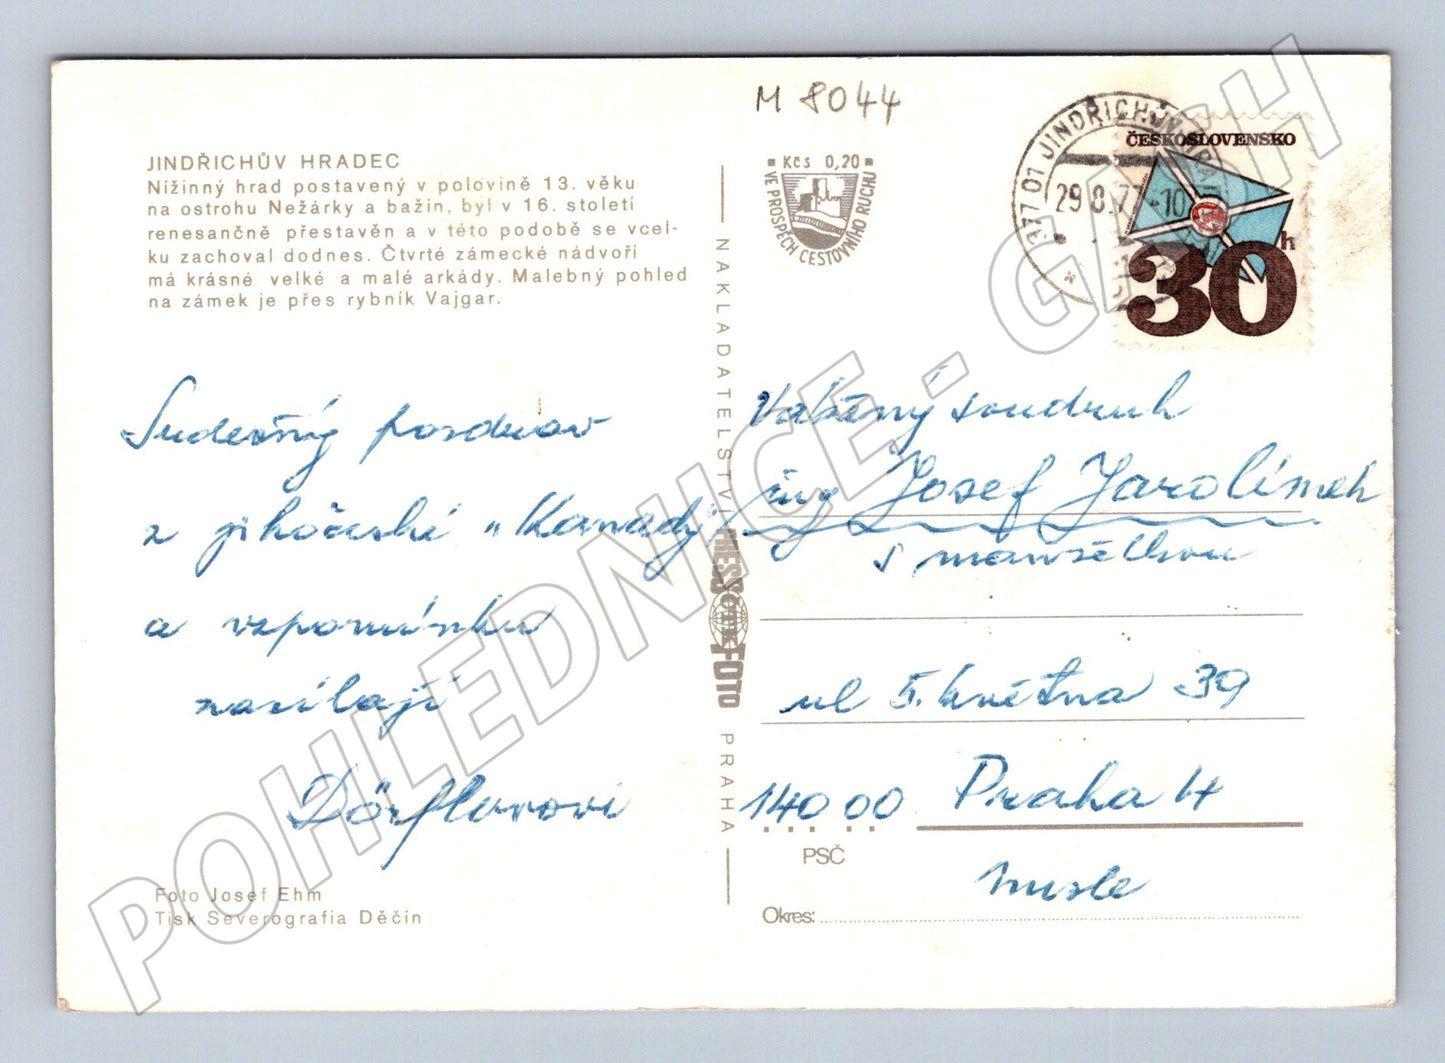 M 8044
JINDŘICHŮV HRADEC
Nížinný hrad postavený v polovině 13. věku
na ostrohu Nežárky a bažin, byl v 16. století
renesančně přestavěn a v této podobě se vcel-
ku zachoval dodnes. Čtvrté zámecké nádvoří
má krásné velké a malé arkády. Malebný pohled
na zámek je přes rybník Vajgar.
Srdečný pozdrav
z jihočeské "Kanady"
a vzpomínku
zasílají
Dörflerovi
Foto Josef Ehm
Tisk Severografia Děčín
NAKLADATELSTVÍ PRESSFOTO PRAHA
ČTK
Kčs 0,20
VE PROSPĚCH CESTOVNÍHO RUCHU
377 01 JINDŘICHŮV HRADEC
29.8.77-10
ČESKOSLOVENSKO
30h
Vážený soudruh
ing Josef Jarolímek
s manželkou
ul 5. května 39
140 00 Praha 4
PSČ
Nusle
Okres:
POHLEDNICE - GASH